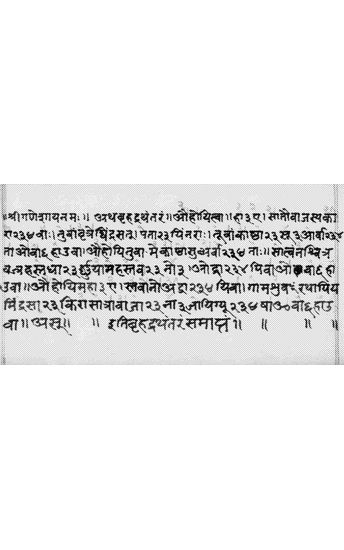 ॥श्रीगणेशायनमः॥ अथबृहद्रथंतरं॥ औहोयित्वा॥ हा३ए। सातौवाजस्यका
रा२३४वाः। तुवांवृत्रेषिंद्रसत्। पता२३यिनराः। तूवांकाष्ठा२३सू३आर्वा२३४
ताओवा६हाउवा॥ औहोयितुवामेकाष्ठासुअर्वा२३४ताः॥ सात्वंनश्चित्र
वज्रहस्तधा२३र्ष्णुयामहस्तवा२३नो३। ओद्रा२३४यिवाओवा६हा
उवा॥ औहोयिमहा३ए। स्तवानोअद्रा२३४यिवा॥ गामश्वंरथायिय
मिंद्रसा२३किरासात्रावाजा२३ना३जायिग्यू२३४षाओवा६हाउ
वा॥ अस्॥ ॥ इतिबृहद्रथंतरंसमाप्तं॥ ॥ ॥ ॥